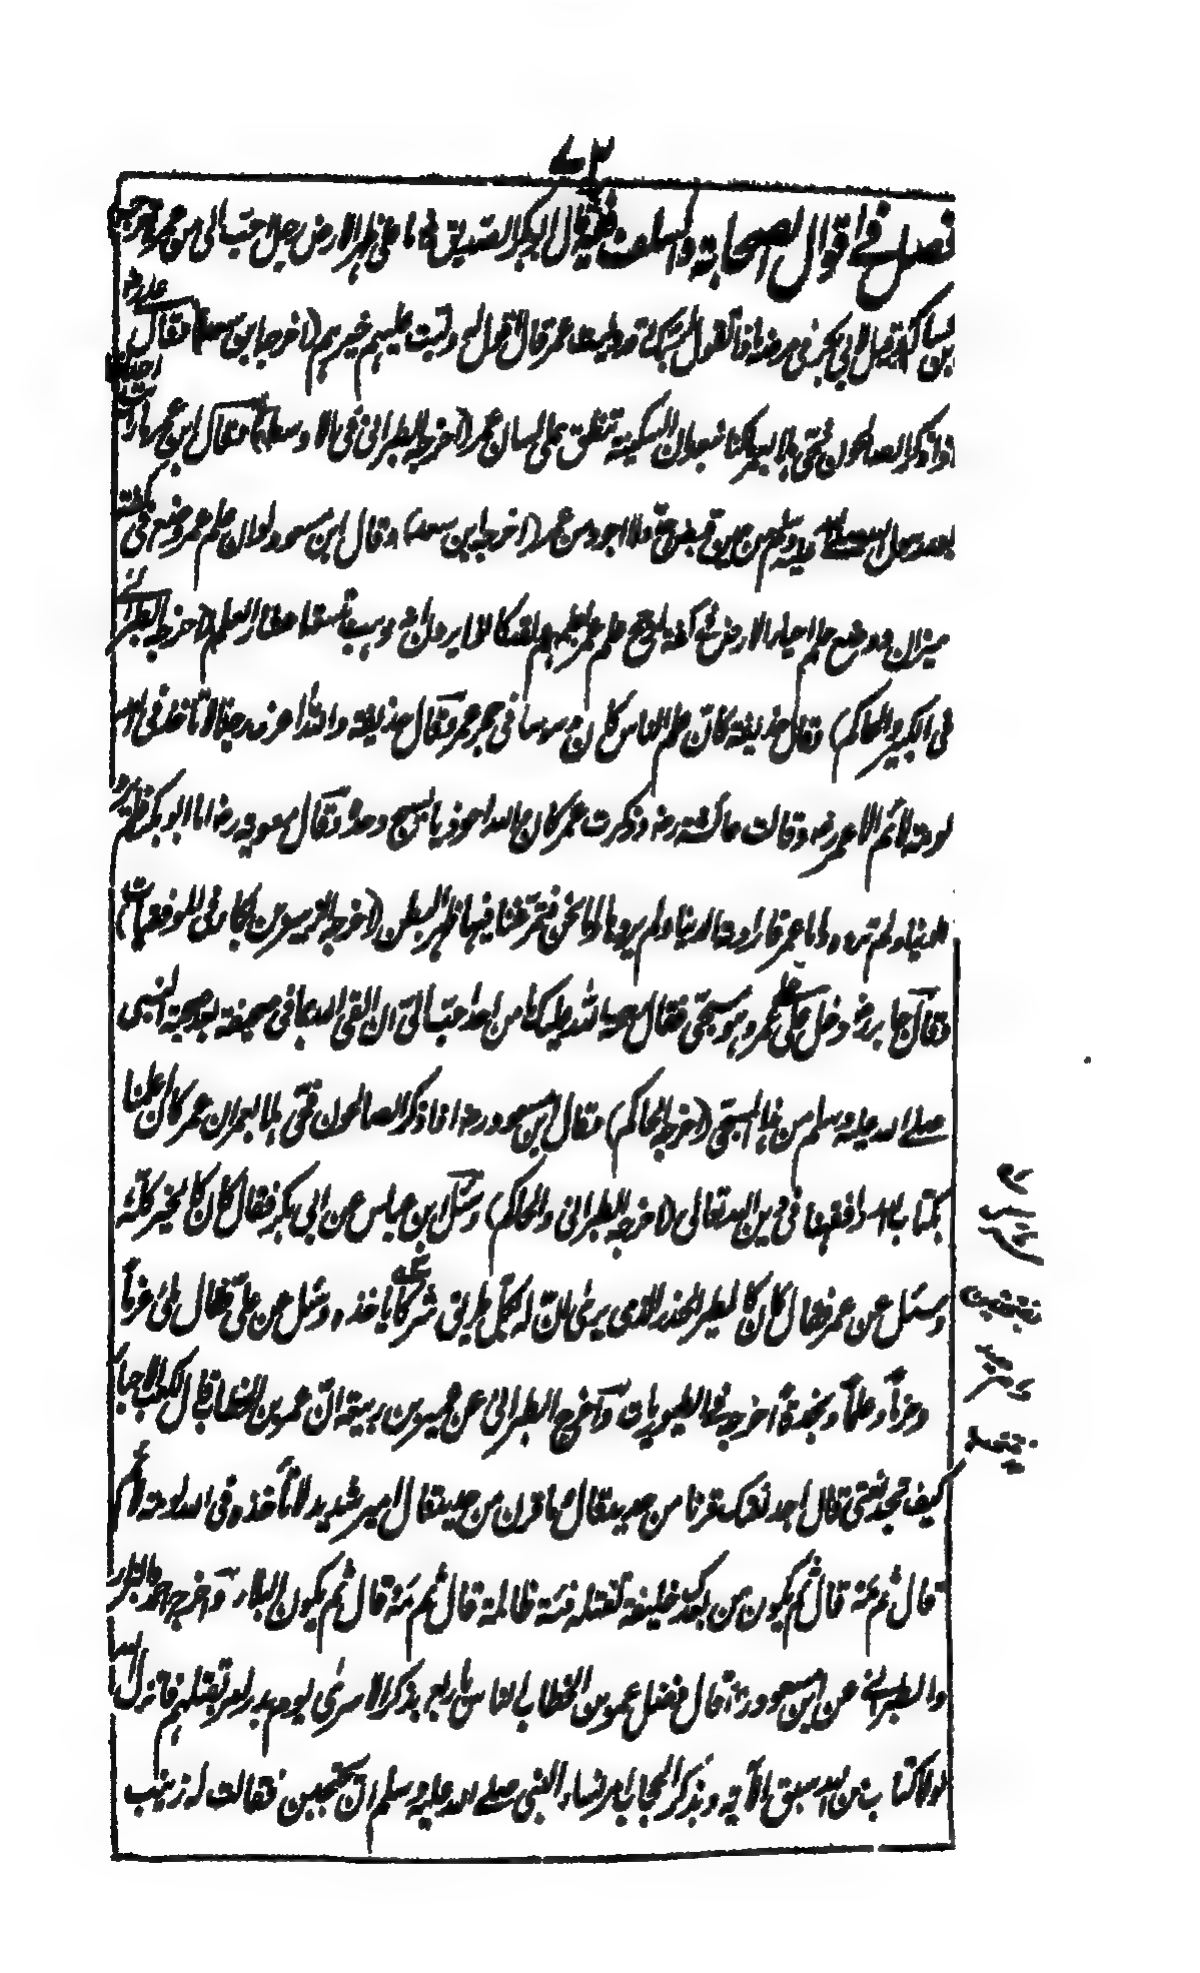 ٧٣
فصل في اقوال الصحابة والسلف فيه قال ابو بكر الصديق رض ما على ظهر الارض رجل احب الى من عمر اخرجه
ابن عساكر وقيل لابي بكر في مرضه ماذا تقول لربك وقد وليت عمر قال اقول له وليت عليهم خيرهم (اخرجه ابن سعد) وقال على رض
اذا ذكر الصالحون فحي هلا بعمر ما كنا نبعد ان السكينة تنطق على لسان عمر (اخرجه الطبراني في الاوسط) وقال ابن عمر ما رايت احدا
بعد رسول الله صلى الله عليه وسلم من حين قبض احد ولا اجود من عمر (اخرجه ابن سعد) وقال ابن مسعود لو ان علم عمر وضع في كفة
ميزان ووضع علم احياء الارض في كفة لرجح علم عمر بعلمهم ولقد كانوا يرون انه ذهب بتسعة اعشار العلم (اخرجه الطبراني
في الكبير والحاكم) وقال حذيفة كان علم الناس كان مدسوسا في حجر عمر وقال حذيفة والله ما اعرف رجلا لا تاخذه في الله
لومة لائم الا عمر رض وقالت عائشة رض وذكرت عمر كان والله احوذيا نسيج وحده وقال معوية رض اما ابو بكر فلم يرد
الدنيا ولم ترده واما عمر فارادته الدنيا ولم يردها واما نحن فتمرغنا فيها ظهر البطن (اخرجه الزبير بن بكار في الموفقيات)
وقال جابر رض دخل على على عمر وهو مسجى فقال رحمة الله عليك ما من احد احب الى ان القى الله بما في صحيفته بعد صحبة النبي
صلى الله عليه وسلم من هذا المسجى (اخرجه الحاكم) وقال ابن مسعود رض اذا ذكر الصالحون فحي هلا بعمر ان عمر كان اعلمنا
بكتاب الله وافقهنا في دين الله تعالى (اخرجه الطبراني والحاكم) وسئل ابن عباس عن ابي بكر فقال كان كالخير كله
وسئل عن عمر فقال كان كالطير الحذر الذي يرى ان له بكل طريق شركا ياخذه وسئل عن على فقال ملئ عزما
وحزما وعلما ونجدة اخرجه في الطيوريات واخرج الطبراني عن عمير بن ربيعة ان عمر بن الخطاب قال لكعب الاحبار
كيف تجد نعتي قال اجد نعتك قرنا من حديد قال وما قرن من حديد قال امير شديد لا تاخذه في الله لومة لائم
قال ثم مه قال ثم يكون من بعدك خليفة تقتله فئة ظالمة قال ثم مه قال ثم يكون البلاء واخرج احمد والبزار
والطبراني عن ابن مسعود رض قال فضل عمر بن الخطاب الناس باربع بذكر الاسرى يوم بدر امر بقتلهم فانزل الله
لولا كتاب من الله سبق الآية وبذكر الحجاب امر نساء النبي صلى الله عليه وسلم ان يحتجبن فقالت له زينب